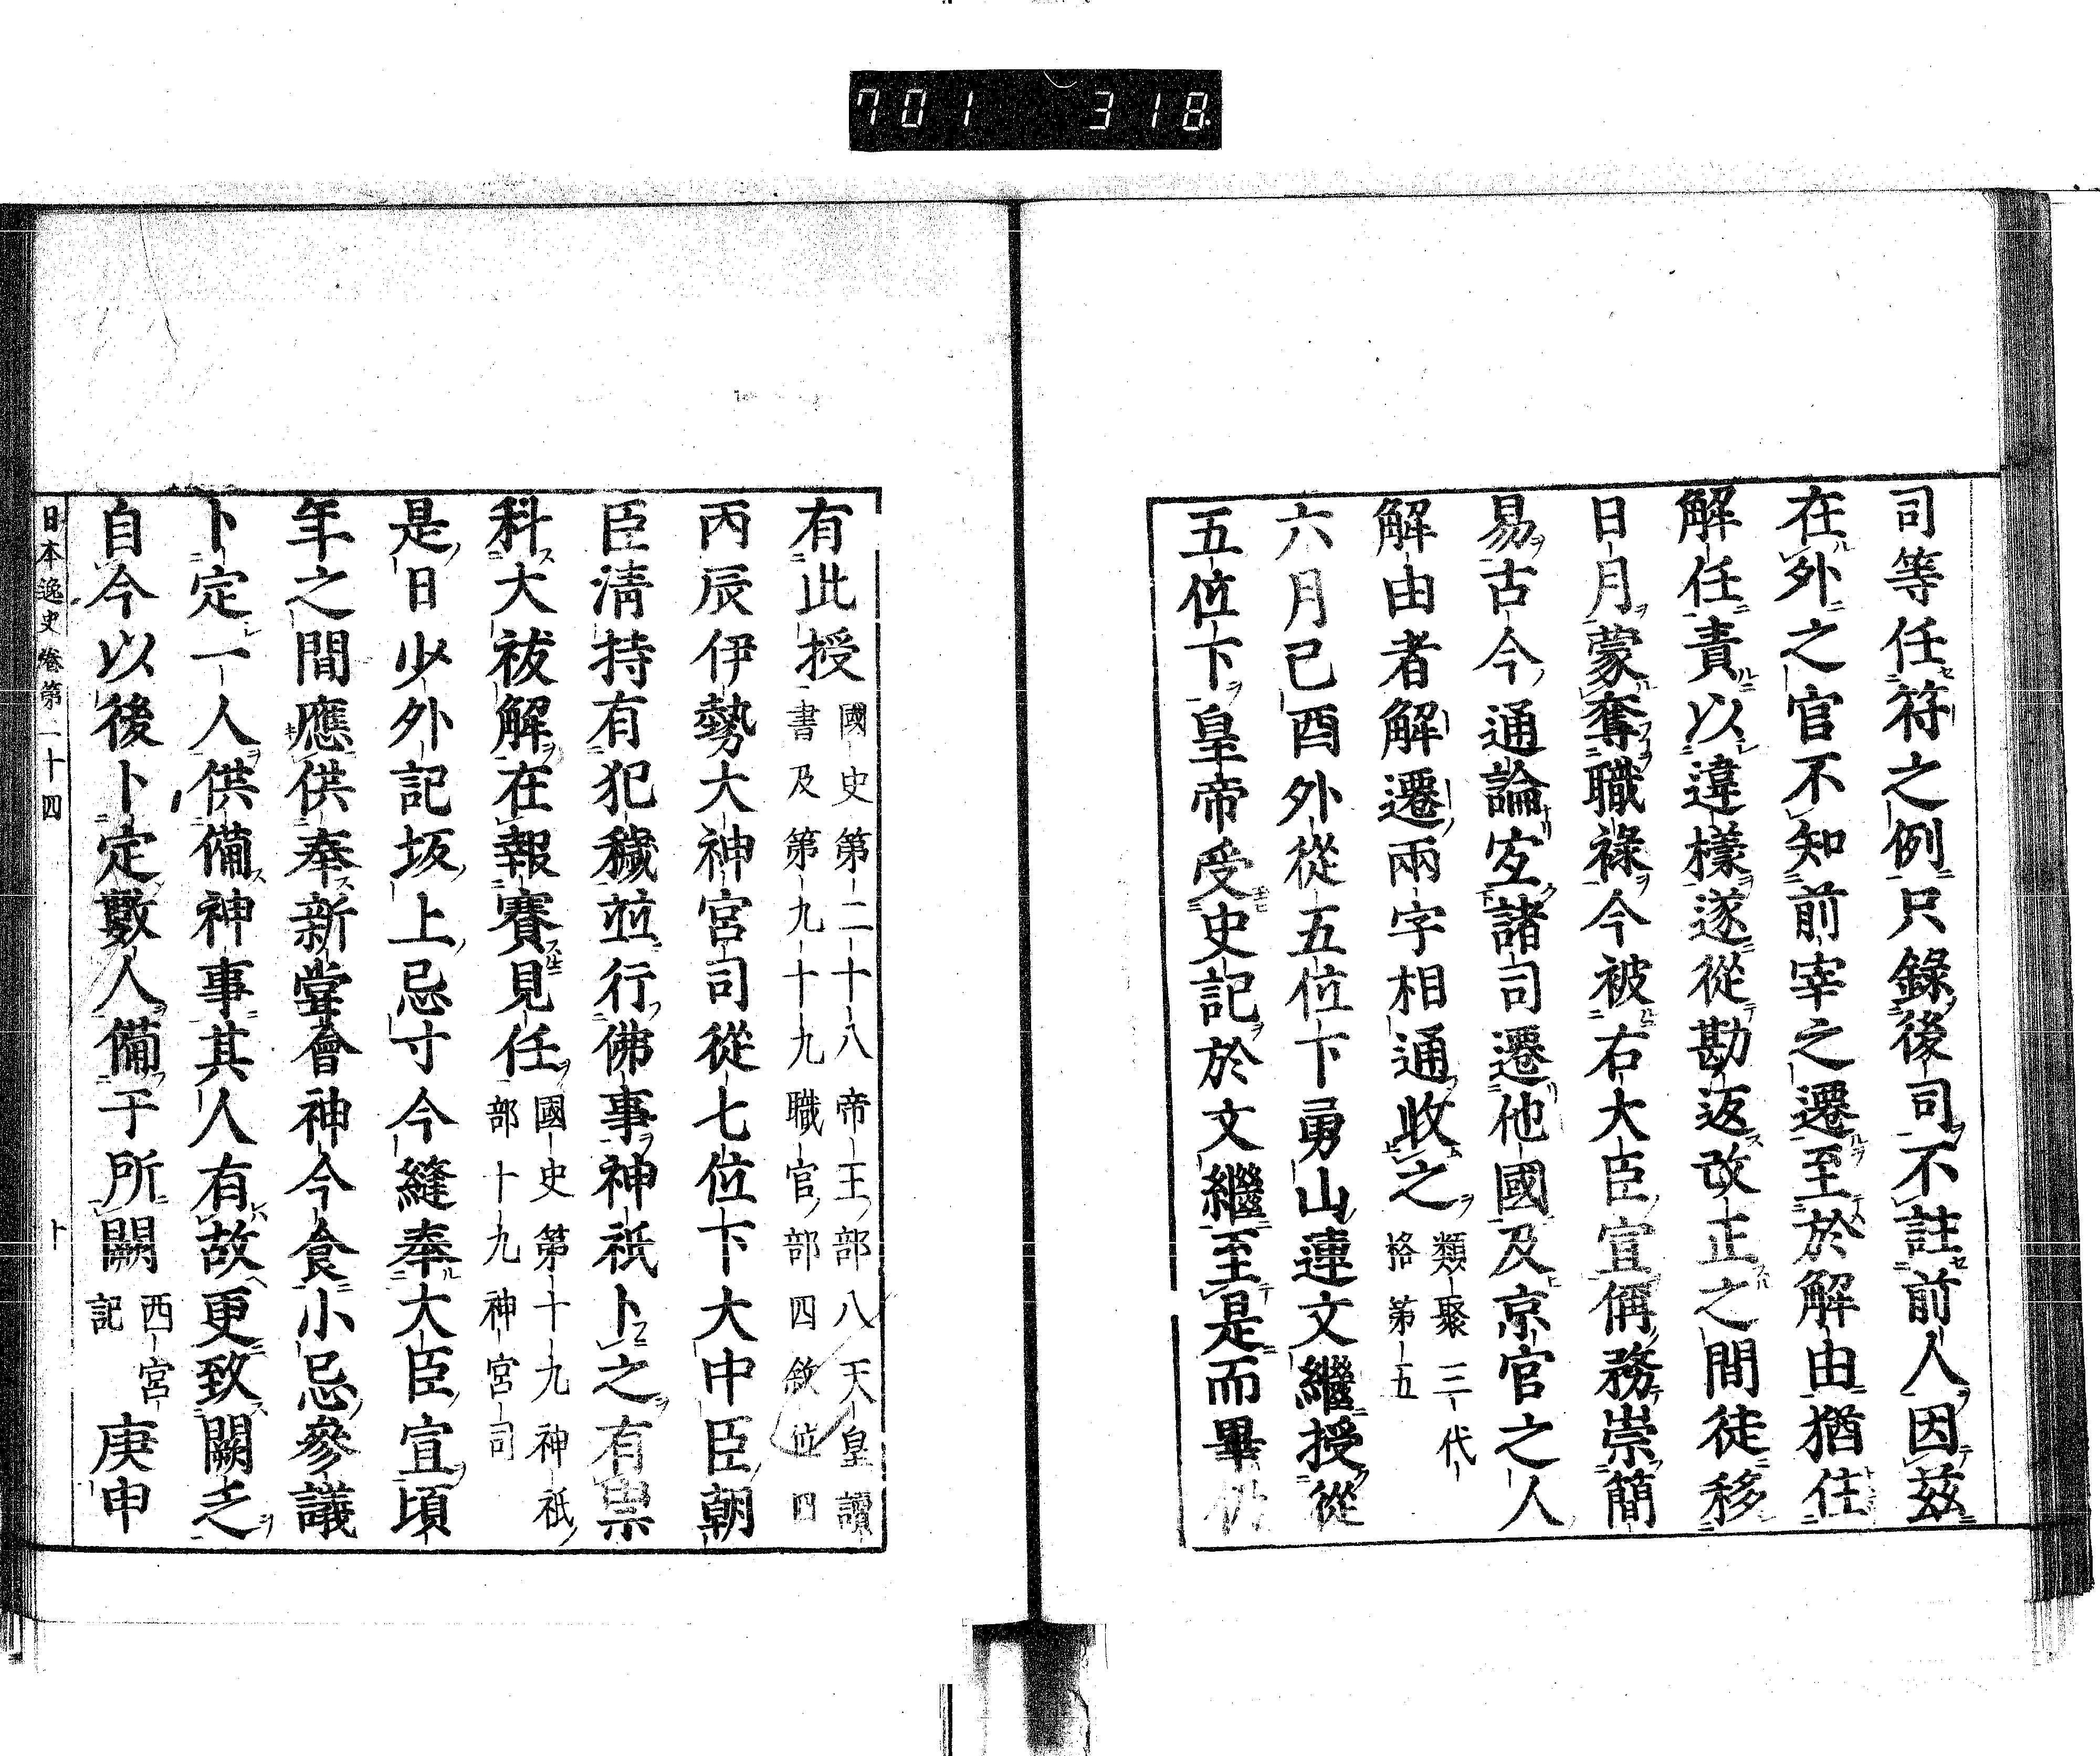 701 318
司等任符之例只錄後司不註前人因茲
在外之官不知前宰之遷至於解由猶住
解任責以違樣遂從勘返改正之間徒移
日月蒙奪職祿今被右大臣宣偁務崇簡
易古今通論宜諸司遷他國及京官之人
解由者解遷兩字相通收之
類聚三代
格第五
六月己酉外從五位下勇山連文繼授從
五位下皇帝受史記於文繼至是而畢仍
有此授
國史第二十八帝王部八天皇讀
書及第九十九職官部四敘位四
丙辰伊勢大神宮司從七位下大中臣朝
臣淸持有犯穢並行佛事神祇卜之有祟
科大祓解在報賽見任
國史第十九神祇
部十九神宮司
是日少外記坂上忌寸今繼奉大臣宣頃
年之間應供奉新嘗會神今食小忌參議
卜定一人供備神事其人有故更致闕乏
自今以後卜定數人備于所闕
西宮
記
庚申
日本逸史卷第二十四